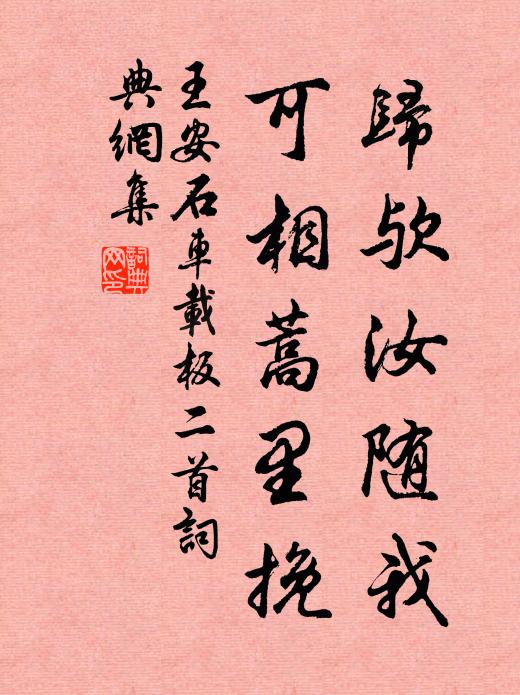 歸欤汝随我
可相蒿里挽
王安石車載板二首詞
典網集
詞典
网印